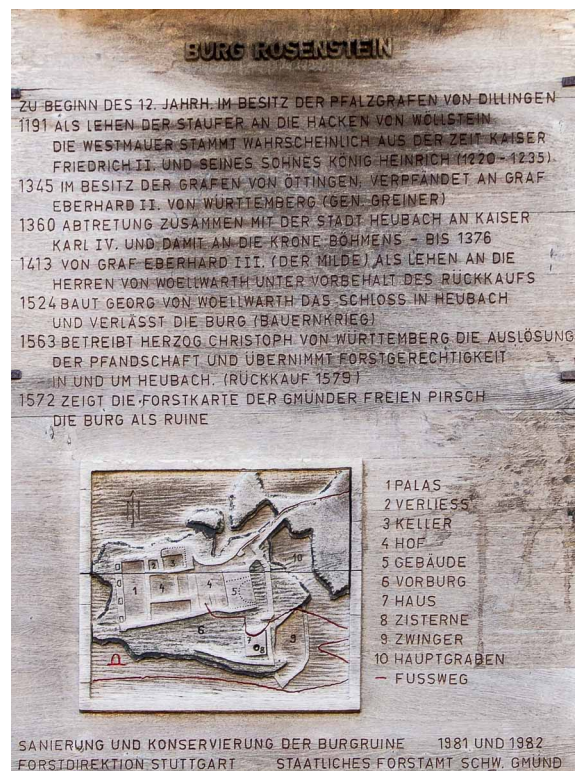 BURG ROSENSTEIN
ZU BEGINN DES 12. JAHRH. IM BESITZ DER PFALZGRAFEN VON DILLINGEN
1191 ALS LEHEN DER STAUFER AN DIE HACKEN VON WÖLLSTEIN
DIE WESTMAUER STAMMT WAHRSCHEINLICH AUS DER ZEIT KAISER
FRIEDRICH II. UND SEINES SOHNES KÖNIG HEINRICH (1220-1235).
1345 IM BESITZ DER GRAFEN VON ÖTTINGEN, VERPFÄNDET AN GRAF
EBERHARD II. VON WÜRTTEMBERG (GEN. GREINER)
1360 ABTRETUNG ZUSAMMEN MIT DER STADT HEUBACH AN KAISER
KARL IV. UND DAMIT AN DIE KRONE BÖHMENS - BIS 1376
1413 VON GRAF EBERHARD III. (DER MILDE) ALS LEHEN AN DIE
HERREN VON WOELLWARTH UNTER VORBEHALT DES RÜCKKAUFS
1524 BAUT GEORG VON WOELLWARTH DAS SCHLOSS IN HEUBACH
UND VERLÄSST DIE BURG (BAUERNKRIEG)
1563 BETREIBT HERZOG CHRISTOPH VON WÜRTTEMBERG DIE AUSLÖSUNG
DER PFANDSCHAFT UND ÜBERNIMMT FORSTGERECHTIGKEIT
IN UND UM HEUBACH. (RÜCKKAUF 1579)
1572 ZEIGT DIE FORSTKARTE DER GMÜNDER FREIEN PIRSCH
DIE BURG ALS RUINE
1 PALAS
2 VERLIESS
3 KELLER
4 HOF
5 GEBÄUDE
6 VORBURG
7 HAUS
8 ZISTERNE
9 ZWINGER
10 HAUPTGRABEN
– FUSSWEG
2 3
10
1 4 4 5
6 7 9
8
SANIERUNG UND KONSERVIERUNG DER BURGRUINE 1981 UND 1982
FORSTDIREKTION STUTTGART STAATLICHES FORSTAMT SCHW. GMÜND